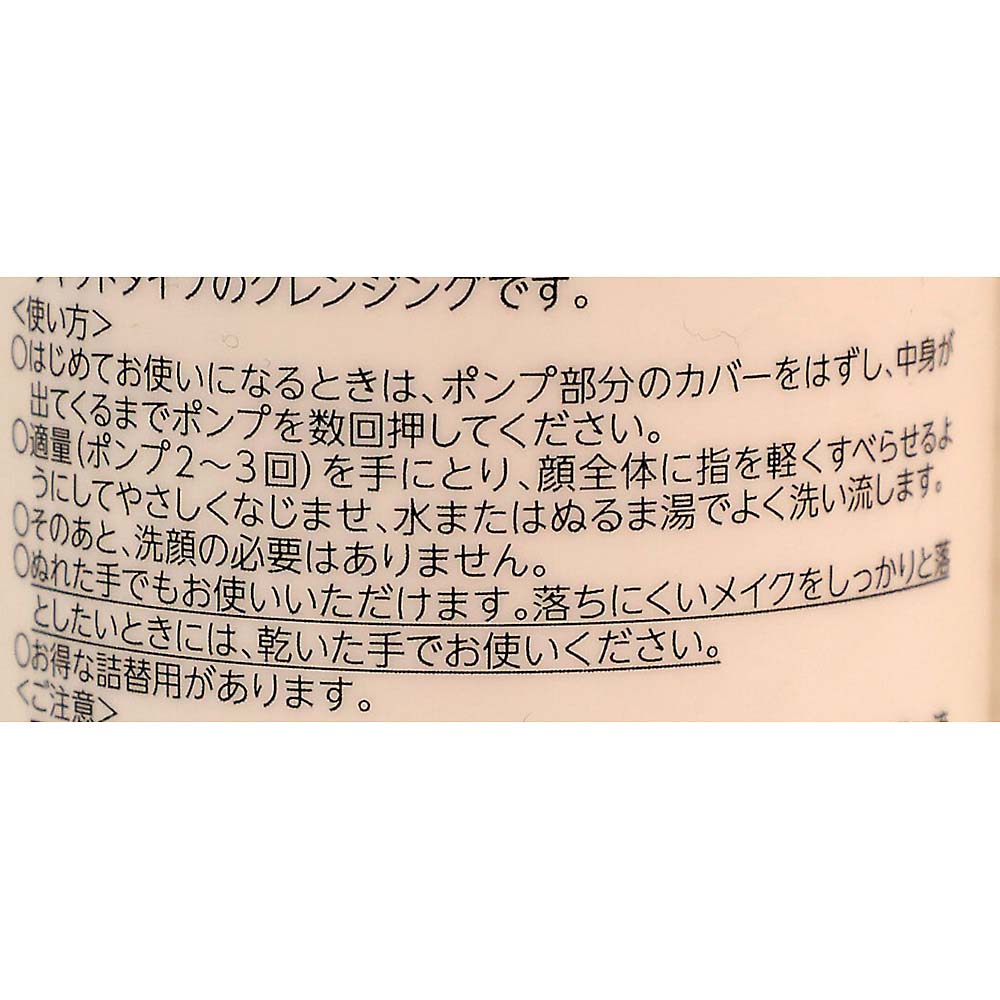 タイプのクレンジングです。
<使い方>
○はじめてお使いになるときは、ポンプ部分のカバーをはずし、中身が
出てくるまでポンプを数回押してください。
○適量(ポンプ2～3回)を手にとり、顔全体に指を軽くすべらせるよ
うにしてやさしくなじませ、水またはぬるま湯でよく洗い流します。
○そのあと、洗顔の必要はありません。
○ぬれた手でもお使いいただけます。落ちにくいメイクをしっかりと落
としたいときには、乾いた手でお使いください。
○お得な詰替用があります。
<ご注意>